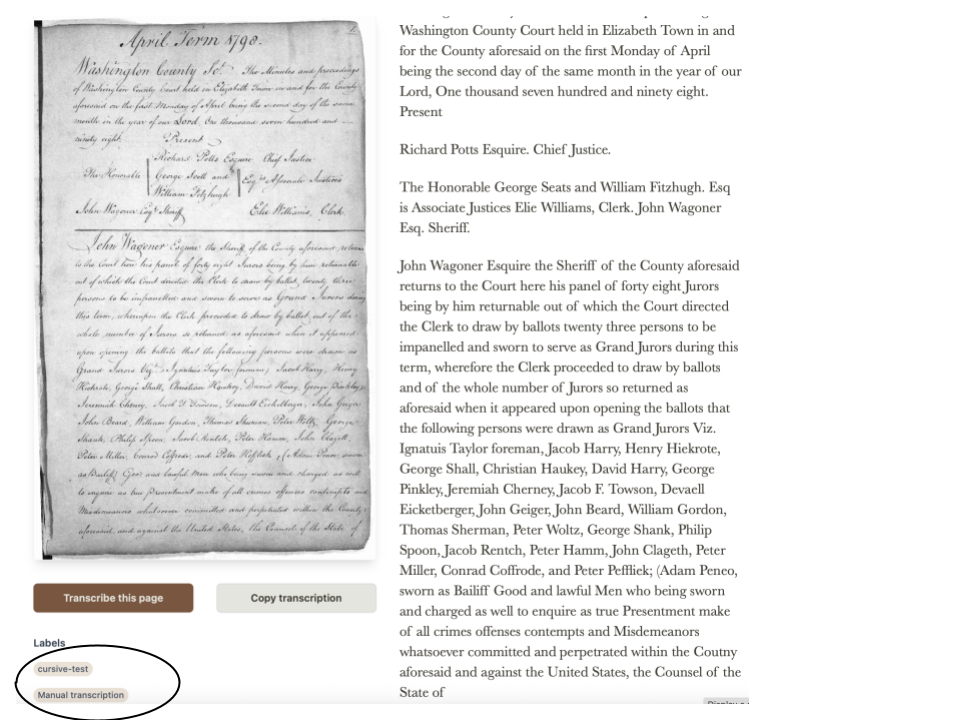 April Term 1798.
Washington County Sct. The Minutes and proceedings
of Washington County Court held in Elizabeth Town in and for the County
aforesaid on the first Monday of April being the second day of the same
month in the year of our Lord, One thousand seven hundred and
ninety eight. Present
Richard Potts Esquire Chief Justice
The Honorable George and Esqrs Associate Justices
William Fitzhugh
John Wagoner Esqr Sheriff Elie Williams, Clerk
John Wagoner Esquire the Sheriff of the County aforesaid, returns
to the Court here his panel of forty eight Jurors being by him returnable
out of which the Court direct the Clerk to draw by ballot, twenty three
persons to be impanelled and sworn to serve as Grand Jurors during
this term, whereupon the Clerk proceeded to draw by ballot, out of the
whole number of Jurors so returned as aforesaid when it appeared
upon opening the ballots that the following persons were drawn as
Grand Jurors Viz. Ignatius Taylor foreman, Jacob Harry, Henry
George Shall, Christian David Harry, George
Jeremiah Jacob T Towson, John Geiger
John Beard, William Gordon, Thomas Peter Woltz, George
Shank, Philip Spoon, Jacob Rentch, Peter John
Peter Miller, Conrad and Peter (Adam sworn
as Bailiff) Good and lawful Men who being sworn and charged as well
to enquire as true Presentment make of all crimes offences contempts and
Misdemeanors whatsoever committed and perpetrated within the County
aforesaid and against the United States, the Counsel of the State of
Transcribe this page
Copy transcription
Labels
cursive-test
Manual transcription
Washington County Court held in Elizabeth Town in and
for the County aforesaid on the first Monday of April
being the second day of the same month in the year of our
Lord, One thousand seven hundred and ninety eight.
Present
Richard Potts Esquire. Chief Justice.
The Honorable George Seats and William Fitzhugh. Esq
is Associate Justices Elie Williams, Clerk. John Wagoner
Esq. Sheriff.
John Wagoner Esquire the Sheriff of the County aforesaid
returns to the Court here his panel of forty eight Jurors
being by him returnable out of which the Court directed
the Clerk to draw by ballots twenty three persons to be
impanelled and sworn to serve as Grand Jurors during this
term, wherefore the Clerk proceeded to draw by ballots
and of the whole number of Jurors so returned as
aforesaid when it appeared upon opening the ballots that
the following persons were drawn as Grand Jurors Viz.
Ignatuis Taylor foreman, Jacob Harry, Henry Hiekrote,
George Shall, Christian Haukey, David Harry, George
Pinkley, Jeremiah Cherney, Jacob F. Towson, Devaell
Eicketberger, John Geiger, John Beard, William Gordon,
Thomas Sherman, Peter Woltz, George Shank, Philip
Spoon, Jacob Rentch, Peter Hamm, John Clageth, Peter
Miller, Conrad Coffrode, and Peter Peffliek; (Adam Peneo,
sworn as Bailiff Good and lawful Men who being sworn
and charged as well to enquire as true Presentment make
of all crimes offenses contempts and Misdemeanors
whatsoever committed and perpetrated within the Coutny
aforesaid and against the United States, the Counsel of the
State of